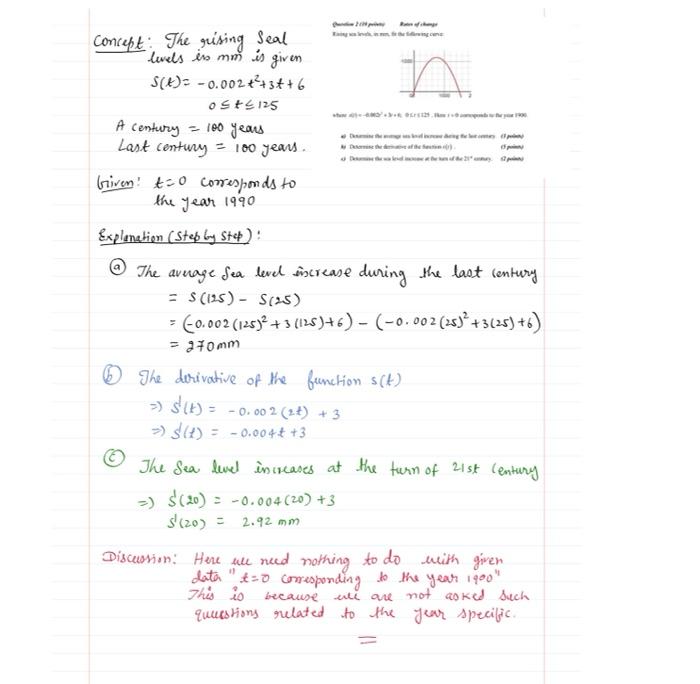 Concept: The rising Seal
levels in mm is given
S(t) = -0.002t²+3t+6
0≤t≤125
A century = 100 years
Last century = 100 years.
Given: t=0 corresponds to
the year 1990
Question 2 (10 points) Rates of change
Rising sea levels, in mm, fit the following curve:
1000
1000 2
where s(t) = -0.002t² + 3t + 6; 0 ≤ t ≤ 125. Here t = 0 corresponds to the year 1900.
a) Determine the average sea level increase during the last century (3 points)
b) Determine the derivative of the function s(t). (5 points)
c) Determine the sea level increase at the turn of the 21st century. (2 points)
Explanation (Step by Step):
(a) The average Sea level increase during the last century
= S(125) - S(25)
= (-0.002(125)² + 3(125)+6) - (-0.002(25)² +3(25)+6)
= 270mm
(b) The derivative of the function s(t)
=> S'(t) = -0.002(2t) + 3
=> S'(t) = -0.004t +3
(c) The Sea level increases at the turn of 21st Century
=> S'(20) = -0.004(20) +3
S'(20) = 2.92 mm
Discussion: Here we need nothing to do with given
data "t=0 corresponding to the year 1900"
This is because we are not asked such
quuestions related to the year specific.